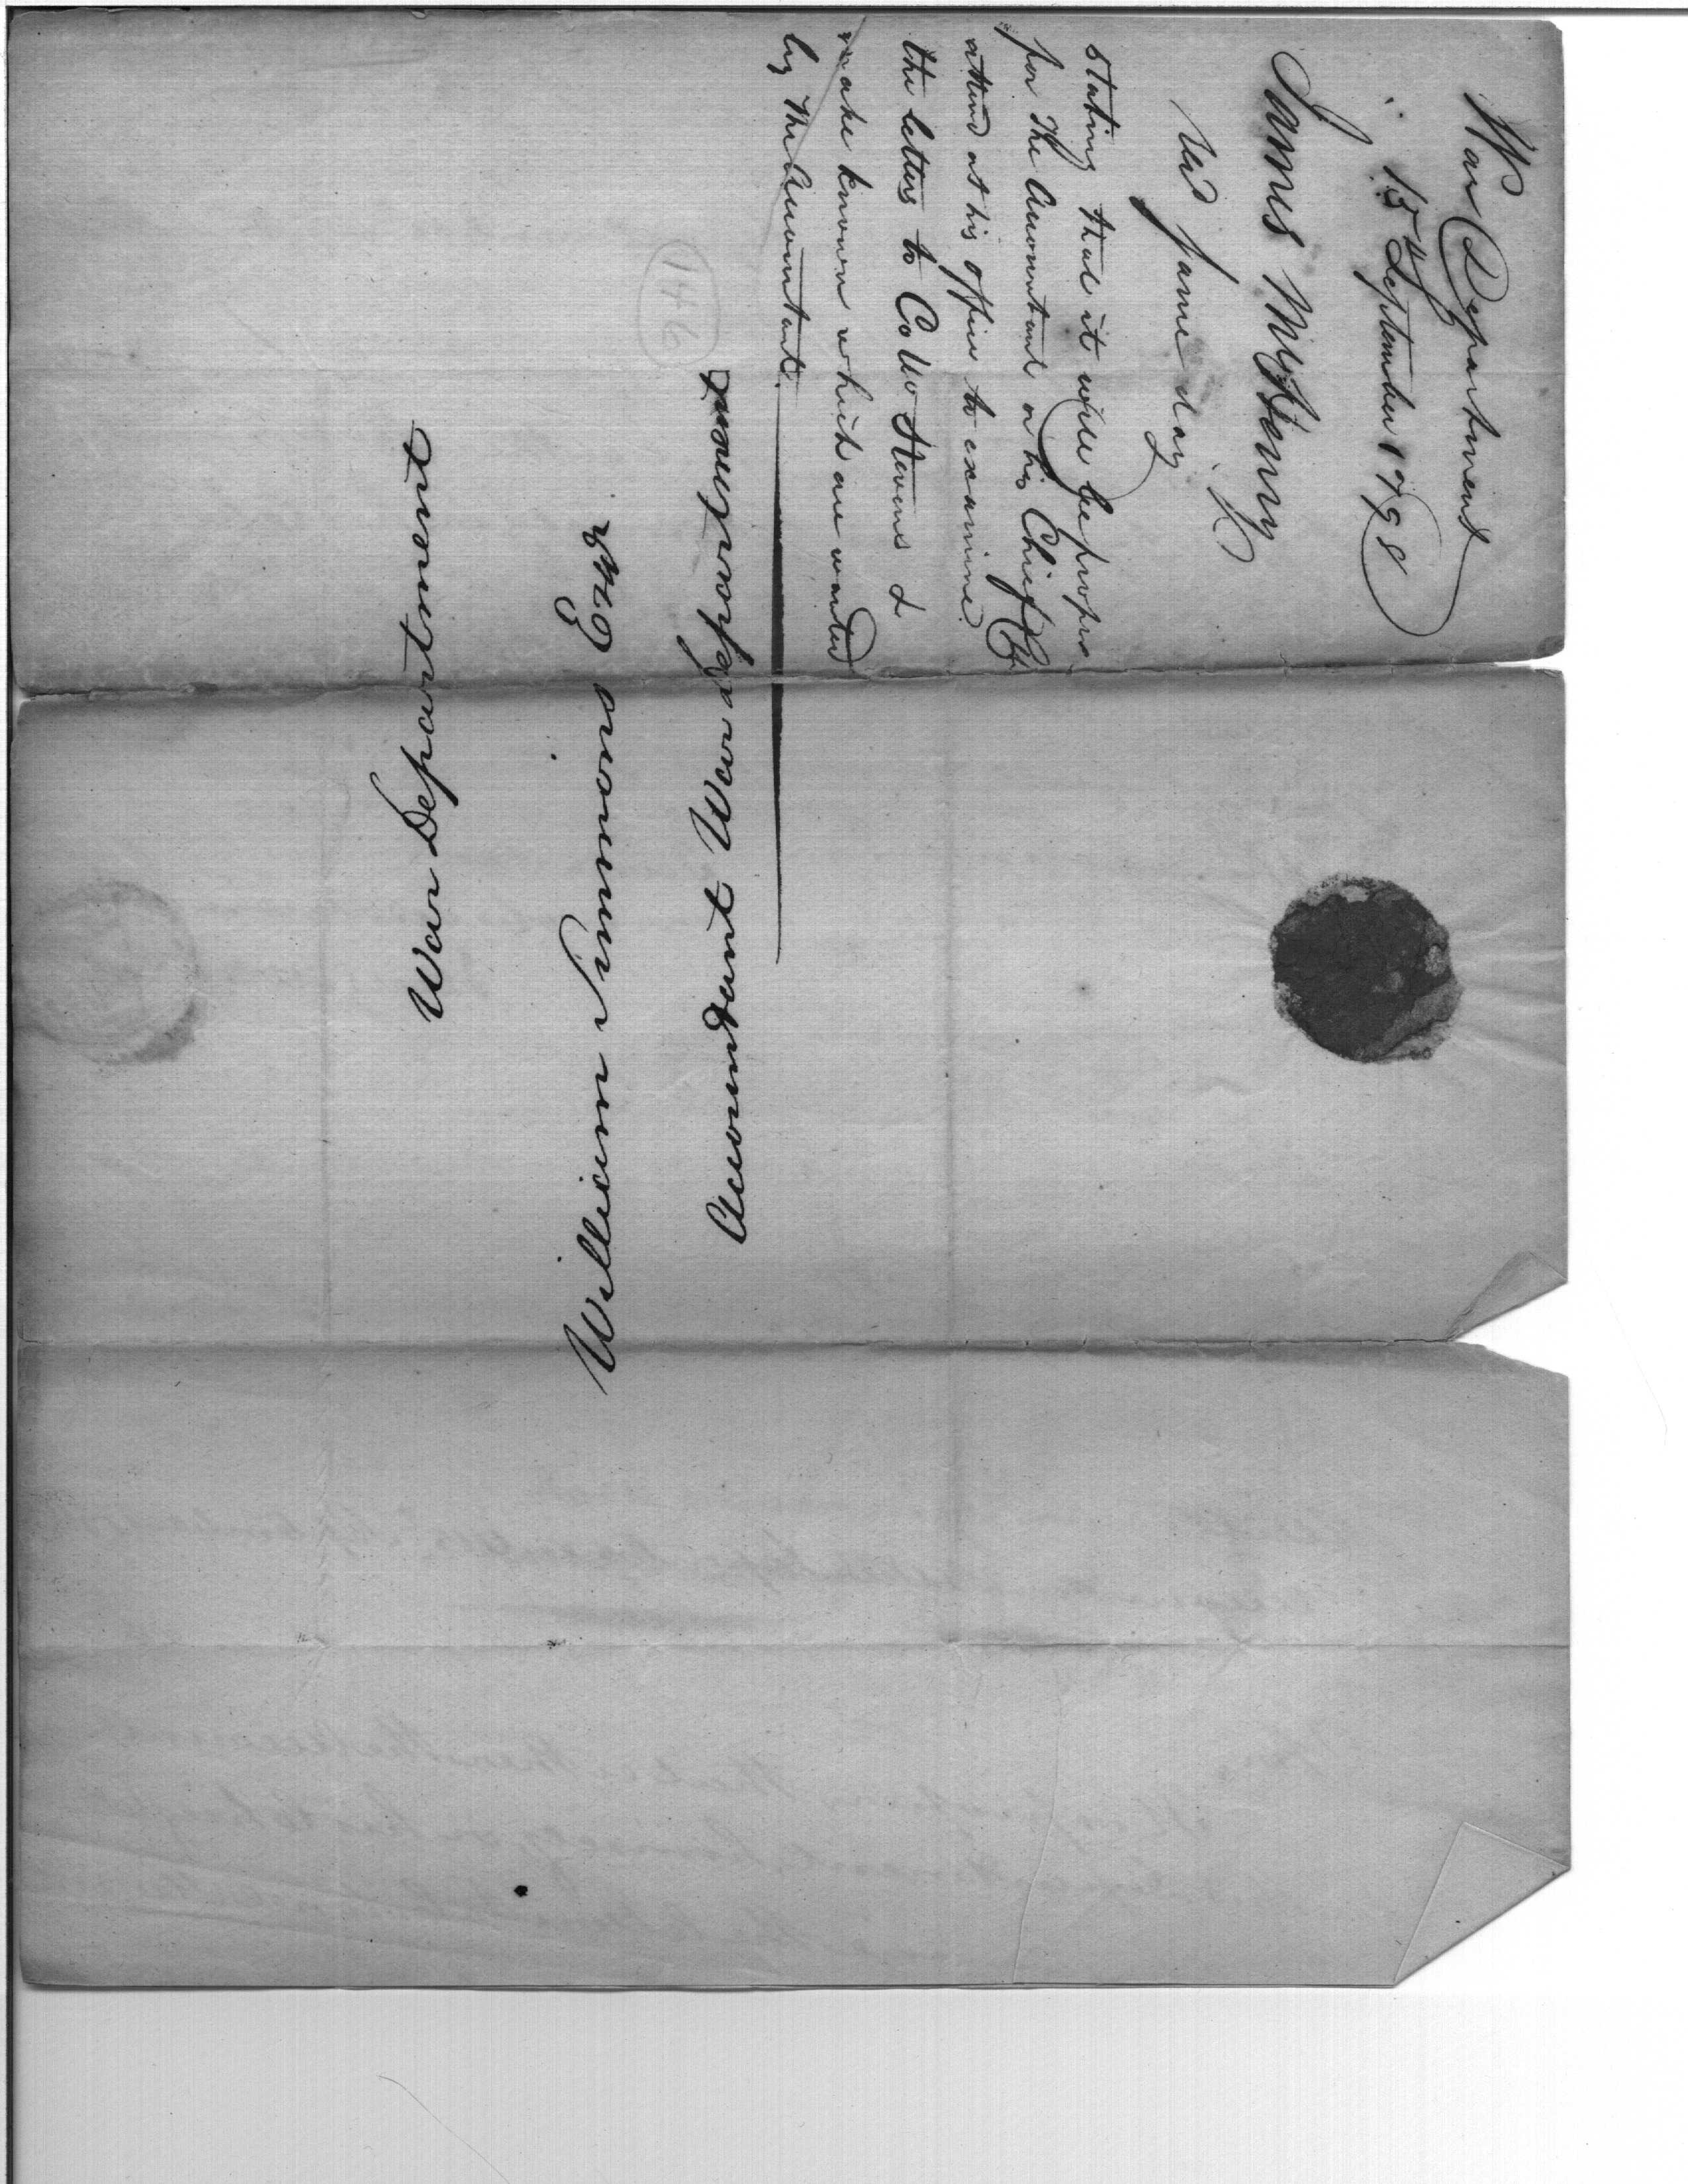 War Department
15th September 1798
James McHenry
recd same day
stating that it will be proper
for the Accountant or his Chief Clk
attend at his office to examine
the letters to Col. Stevens &
make known which are wanted
by the Accountant.
146
War Department
William Simmons Esqr
Accountant War Department